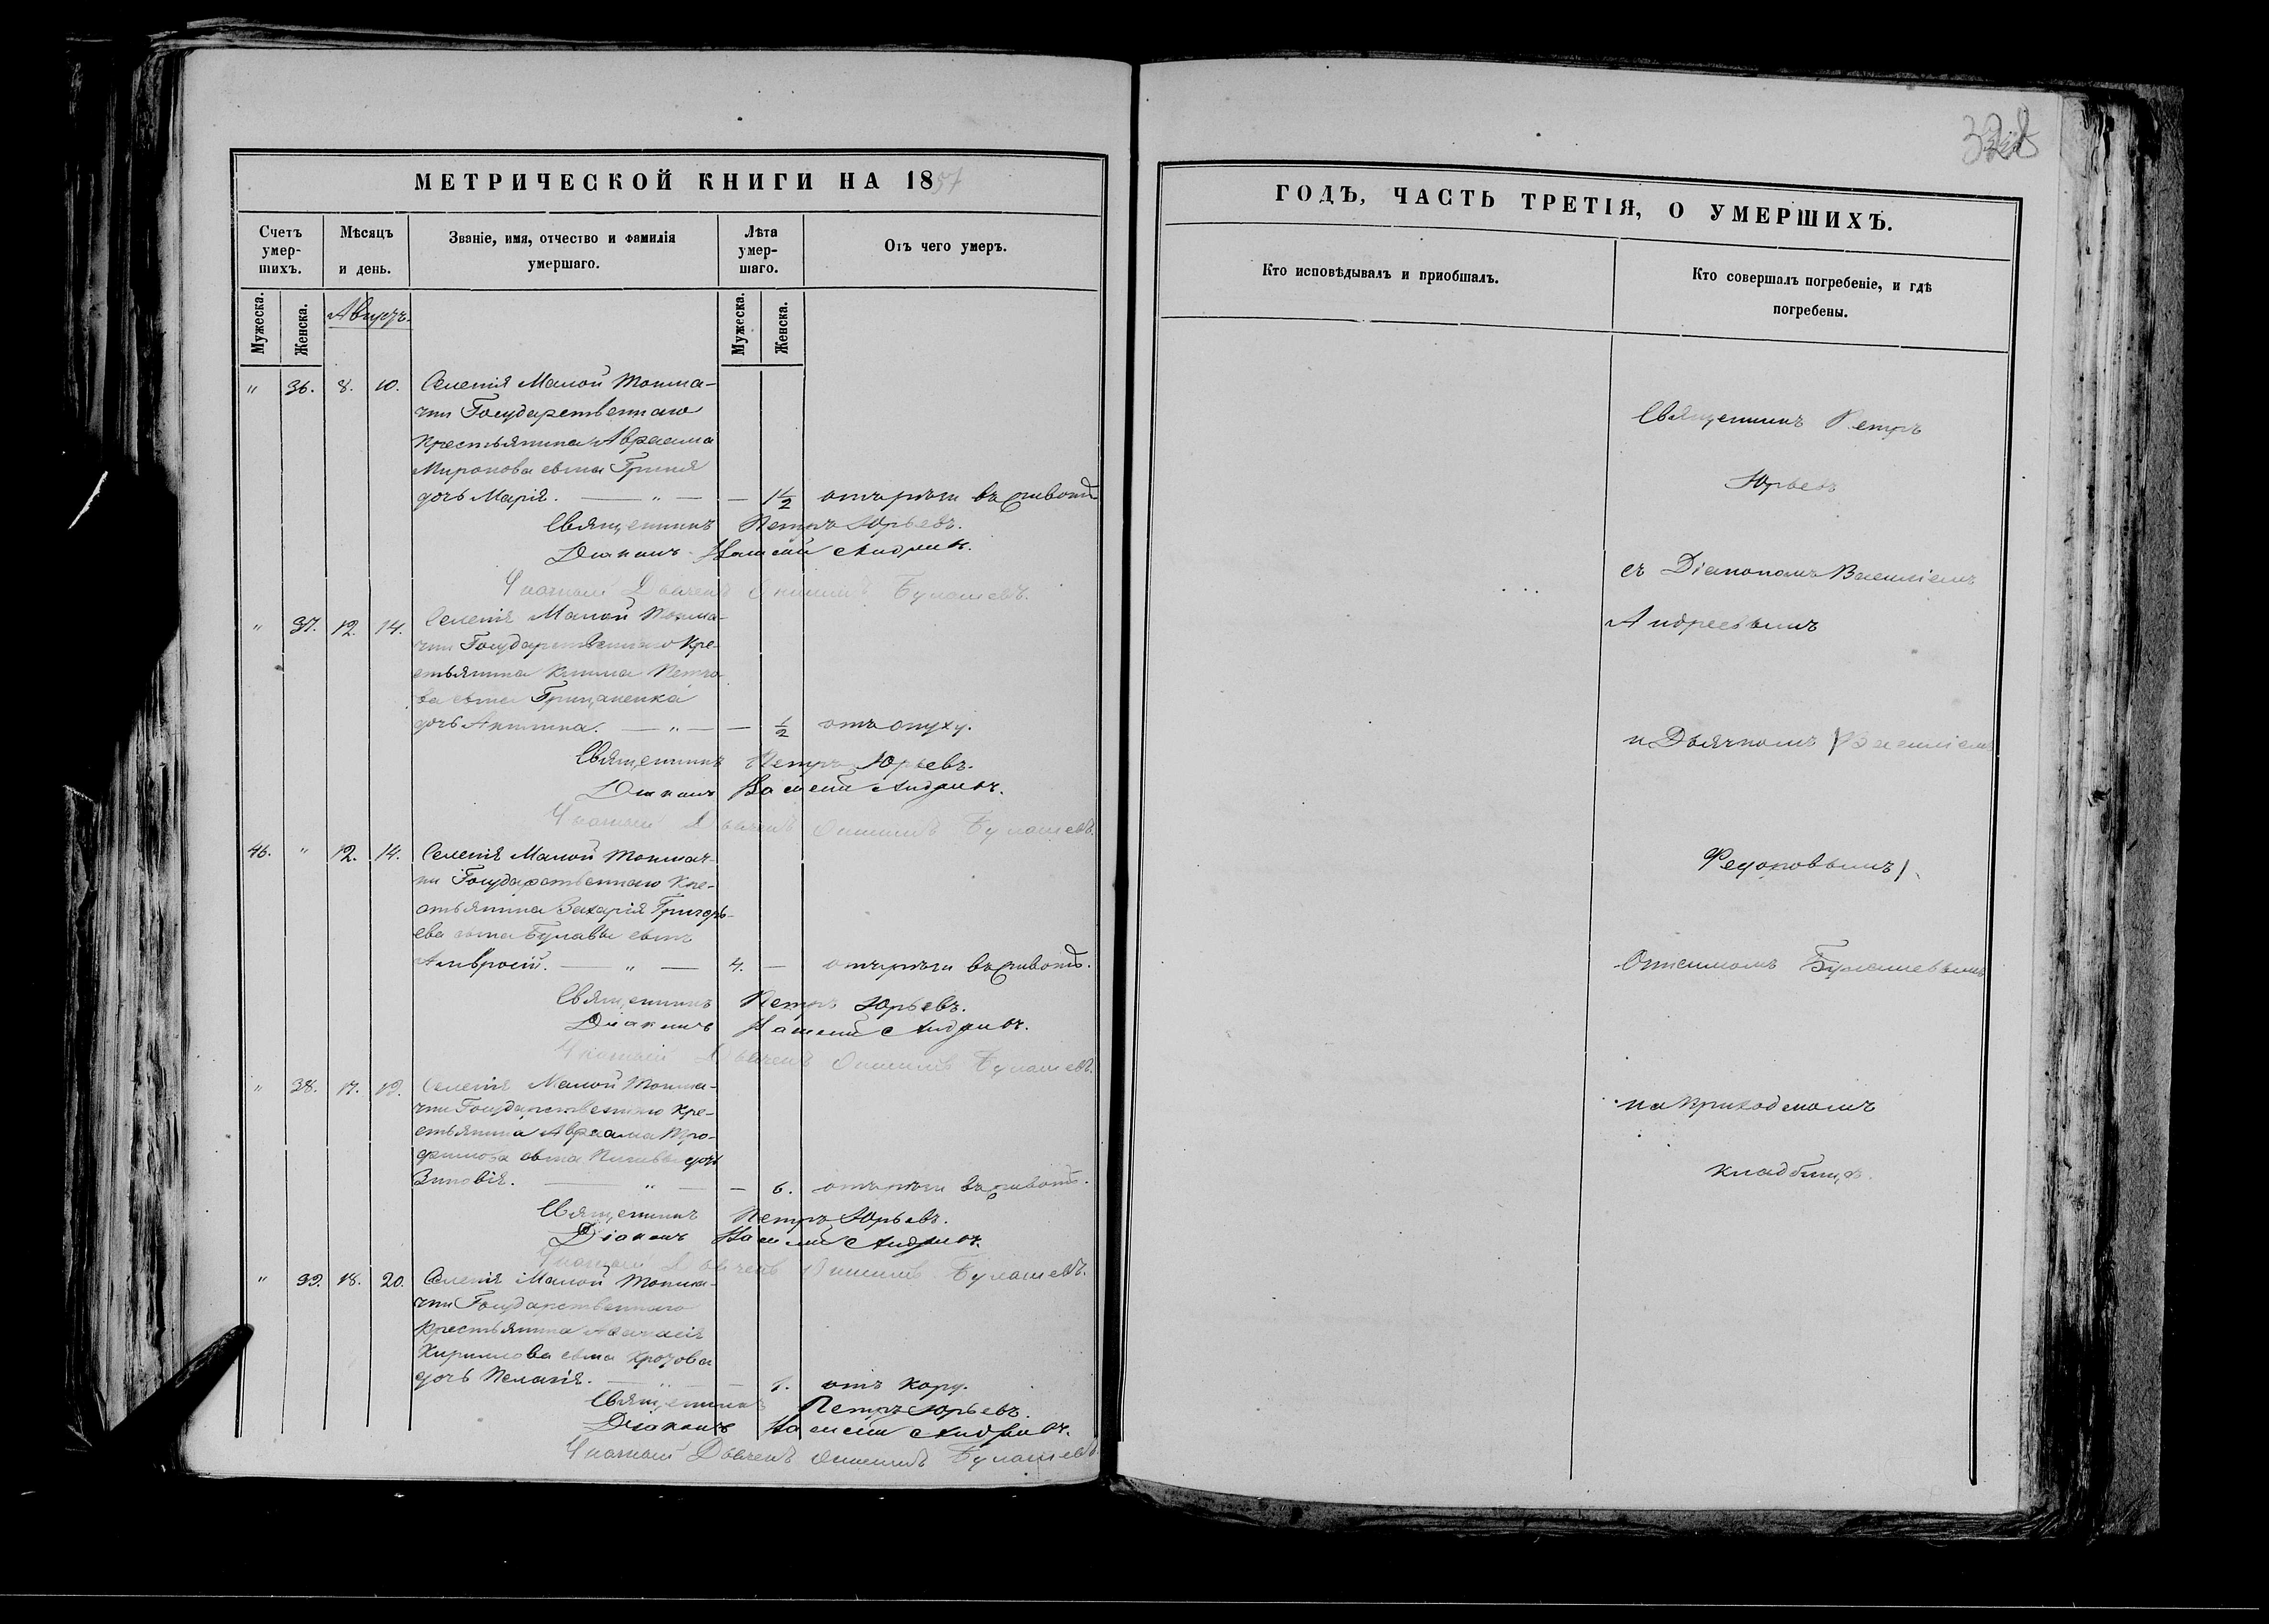 МЕТРИЧЕСКОЙ КНИГИ НА 1857
Счетъ умер-шихъ.
Мѣсяцъ и день.
Званіе, имя, отчество и фамилія умершаго.
Лѣта умер-шаго.
Отъ чего умеръ.
Мужеска.
Женска.
Августъ.
Мужеска.
Женска.
" 36. 8. 10. Селенія Малой Токма-
чки Государственнаго
крестьянина Авраама
Миронова сына
дочь Марія. — " — — 1 1/2 отъ рѣзи въ животѣ
Священникъ Петръ Юрьевъ.
Діаконъ Василій Андреевъ.
Дьячекъ Онисимъ Булашевъ.
" 37. 12. 14. Селенія Малой Токма-
чки Государственнаго кре-
стьянина Клима Петро-
ва сына Грицаненка
дочь Акилина. — " — — 1/2 отъ опуху.
Священникъ Петръ Юрьевъ.
Діаконъ Василій Андреевъ.
Дьячекъ Онисимъ Булашевъ.
46. " 12. 14. Селенія Малой Токмач-
ки Государственнаго кре-
стьянина Захарія Григорь-
ева сына Булавы сынъ
Амвросій. — " — 4. — отъ рѣзи въ животѣ.
Священникъ Петръ Юрьевъ.
Діаконъ Василій Андреевъ.
Дьячекъ Онисимъ Булашевъ.
" 38. 17. 19. Селенія Малой Токма-
чки Государственнаго кре-
стьянина Авраама Тро-
фимова сына дочь
Зиновія. — " — — 6. отъ рѣзи въ животѣ.
Священникъ Петръ Юрьевъ.
Діаконъ Василій Андреевъ.
Дьячекъ Онисимъ Булашевъ.
" 39. 18. 20. Селенія Малой Токма-
чки Государственнаго
крестьянина Афанасія
Кириллова сына
дочь Пелагія. — " — — 1. отъ кору.
Священникъ Петръ Юрьевъ.
Діаконъ Василій Андреевъ.
Дьячекъ Онисимъ Булашевъ.
ГОДЪ, ЧАСТЬ ТРЕТІЯ, О УМЕРШИХЪ.
Кто исповѣдывалъ и пріобщалъ.
Кто совершалъ погребеніе, и гдѣ погребены.
Священникъ Петръ
Юрьевъ
съ Діакономъ Василіемъ
Андреевымъ
и Дьячкомъ
Онисимомъ Булашевымъ
на приходскомъ
кладбищѣ.